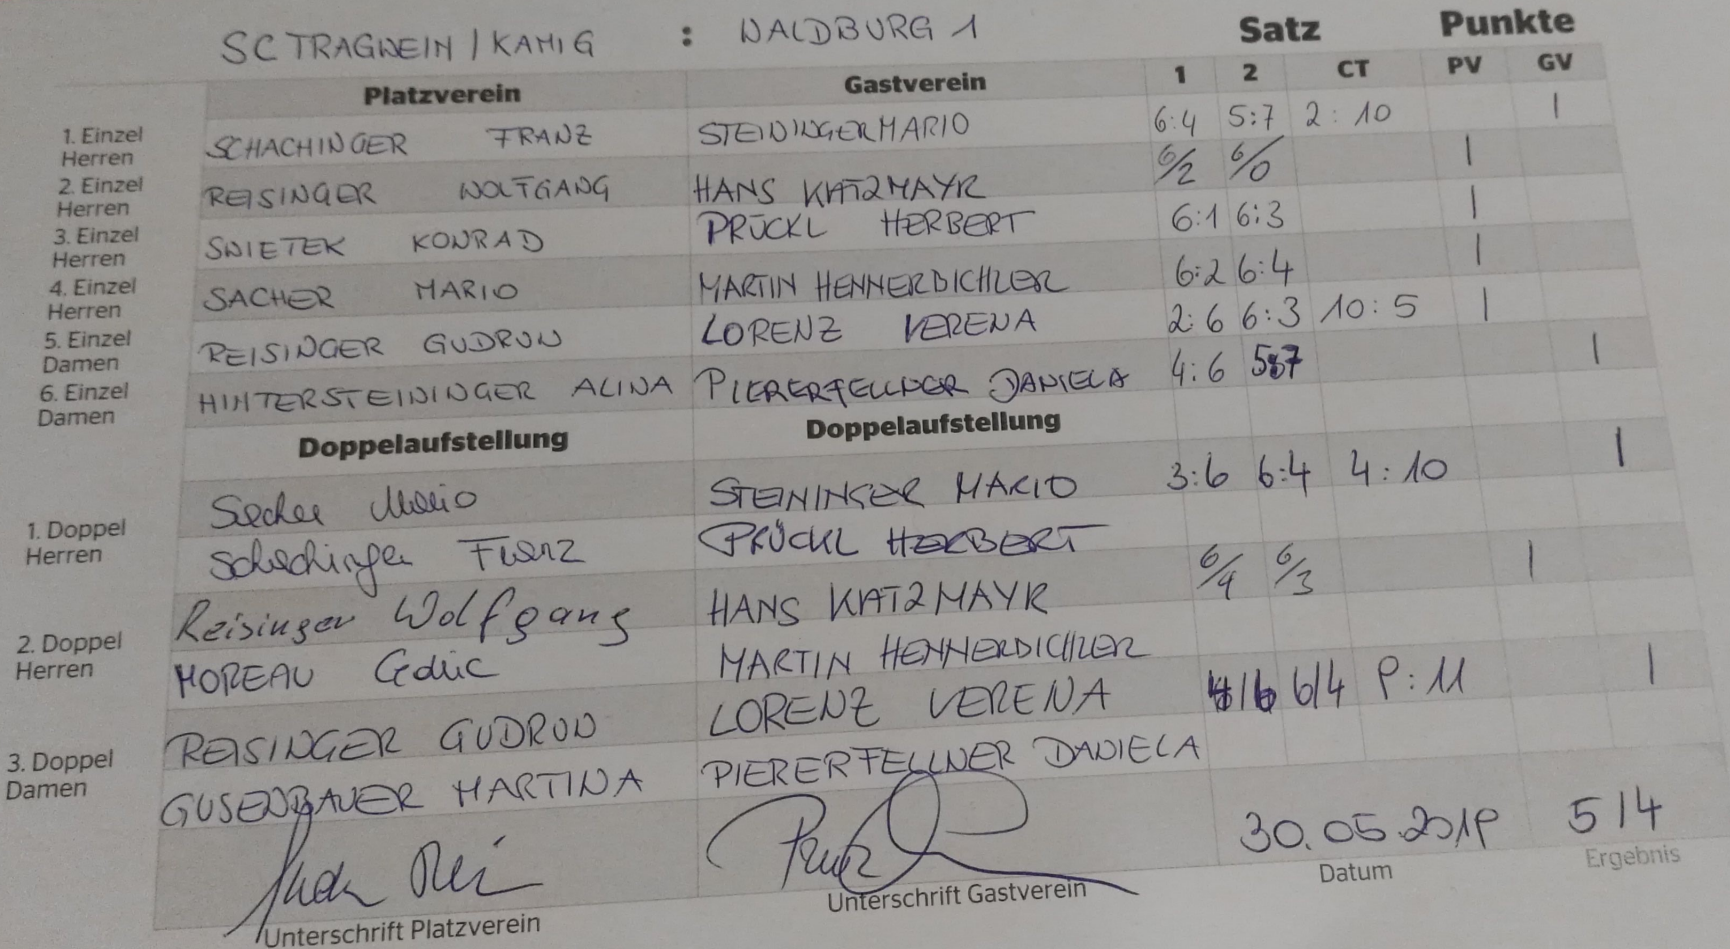 SC TRAGWEIN / KAMIG : WALDBURG 1 Satz Punkte
Platzverein Gastverein 1 2 CT PV GV
1. Einzel Herren SCHACHINGER FRANZ STEININGER MARIO 6:4 5:7 2:10 1
2. Einzel Herren REISINGER WOLFGANG HANS KATZMAYR 6/2 6/0 1
3. Einzel Herren SWIETEK KONRAD PRÜCKL HERBERT 6:1 6:3 1
4. Einzel Herren SACHER MARIO MARTIN HENNERBICHLER 6:2 6:4 1
5. Einzel Damen REISINGER GUDRUN LORENZ VERENA 2:6 6:3 10:5 1
6. Einzel Damen HINTERSTEININGER ALINA PIERERFELLNER DANIELA 4:6 5:7 1
Doppelaufstellung Doppelaufstellung
Sacher Mario STEININGER MARIO 3:6 6:4 4:10 1
1. Doppel Herren Schachinger Franz PRÜCKL HERBERT
Reisinger Wolfgang HANS KATZMAYR 6/4 6/3 1
2. Doppel Herren MOREAU MARTIN HENNERBICHLER
REISINGER GUDRUN LORENZ VERENA 4/6 6/4 9:11 1
3. Doppel Damen GUSENBAUER MARTINA PIERERFELLNER DANIELA
30.05.2019 5/4
Unterschrift Platzverein Unterschrift Gastverein Datum Ergebnis